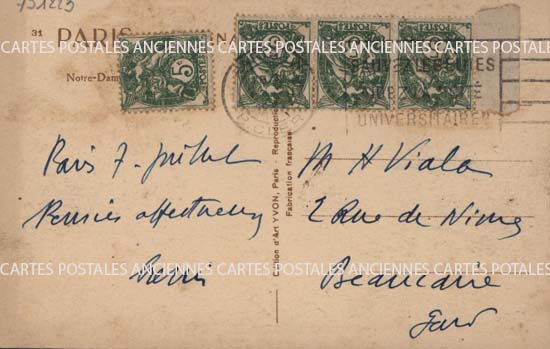 751223
31 PARIS
Notre-Dam
5c
POSTES
CARTES POSTALES ANCIENNES CARTES POSTALES ANCIENNES CARTES POSTALES
UNIVERSITAIRE
Edition d'Art YVON, Paris - Reproduction
Fabrication française
Paris 7 juillet
Pensées affectueuses
M H Viala
2 Rue de Nimes
Beaucaire
Gard
CARTES POSTALES ANCIENNES CARTES POSTALES ANCIENNES CARTES POSTALES